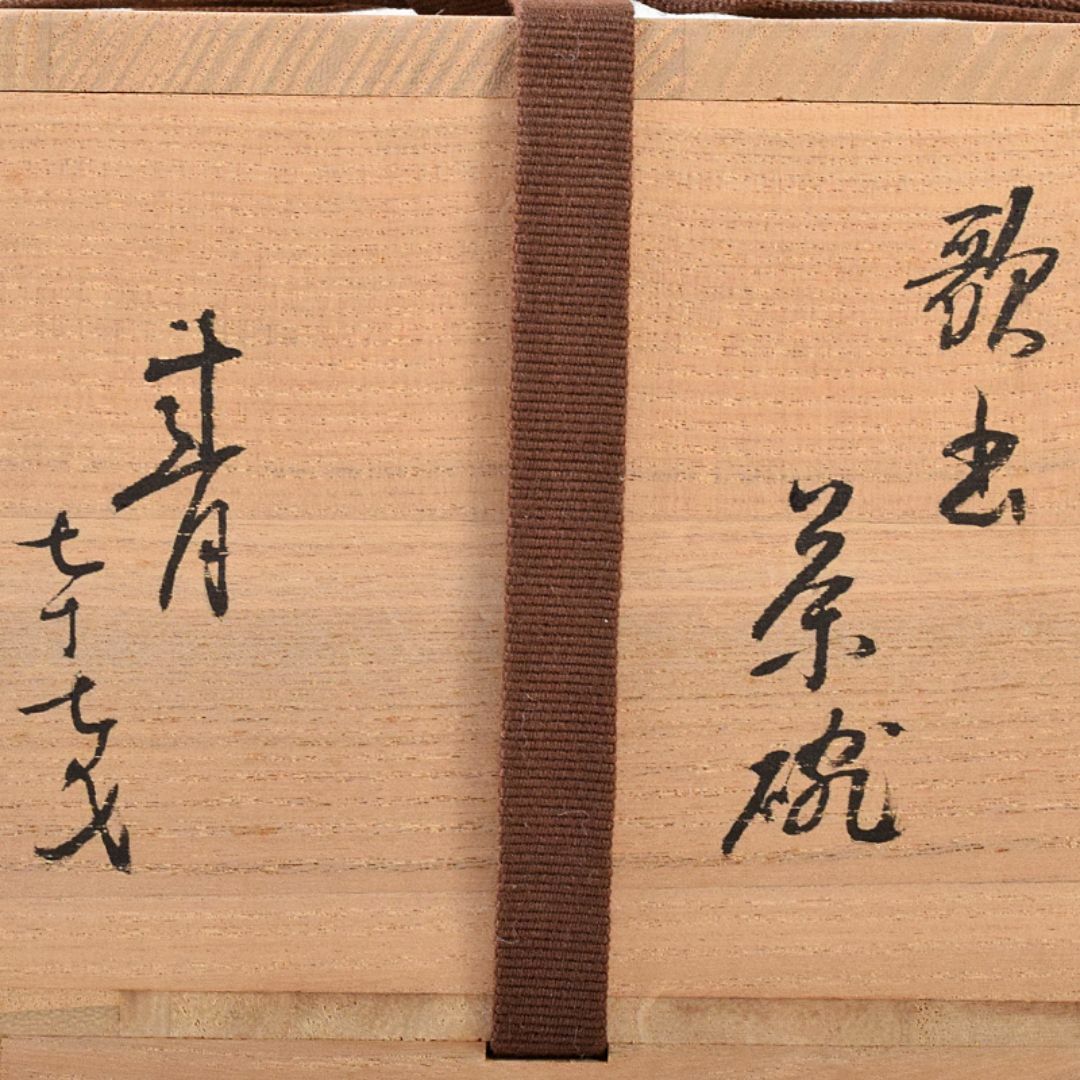 歌書
茶碗
蓮月
七十七才